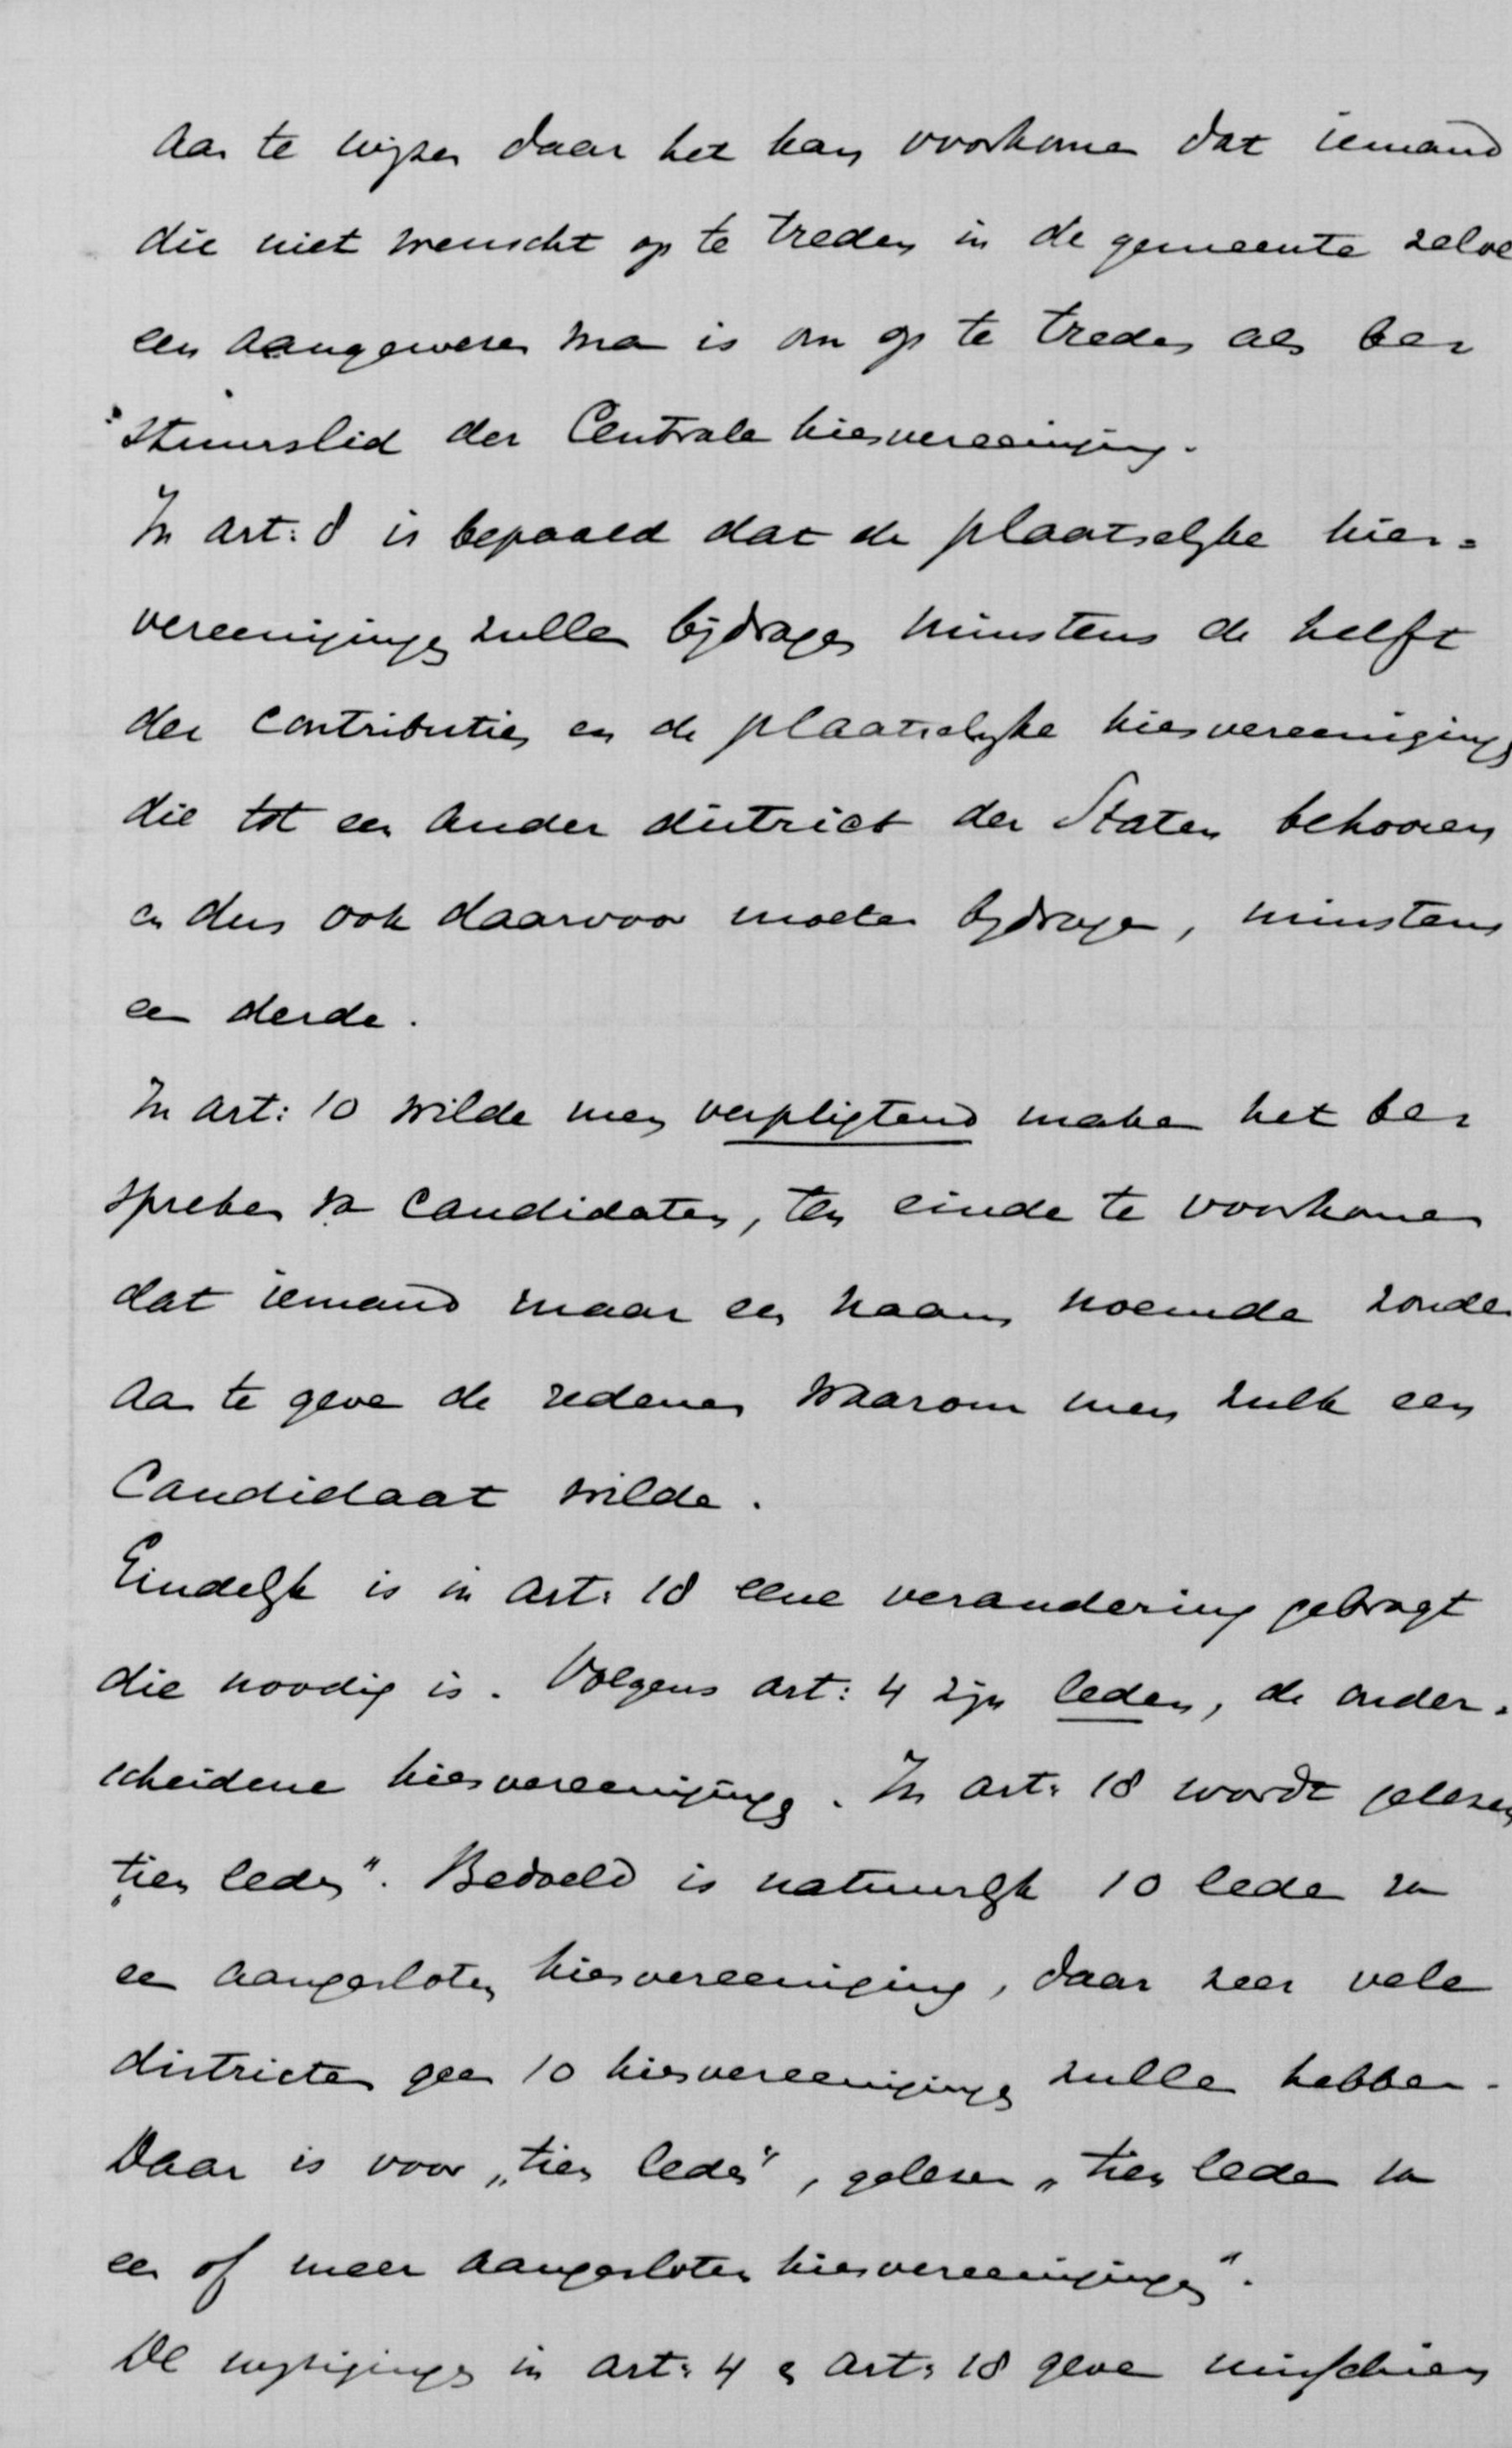 aan te wijzen daar het kan voorkomen dat iemand
die niet wenscht op te treden in de gemeente zelve
een aangewezen man is om op te treden als be=
stuurslid der Centrale kiesvereeniging.
In art: 8 is bepaald dat de plaatselijke kies=
vereenigingen zullen bijdragen minstens de helft
der contributie en de plaatselijke kiesvereenigingen
die tot een ander district der Staten behooren
en dus ook daarvoor moeten bijdragen, minstens
een derde.
In art: 10 wilde men verpligtend maken het be=
spreken van candidaten, ten einde te voorkomen
dat iemand maar een naam noemde zonder
aan te geven de redenen waarom men zulk een
Candidaat wilde.
Eindelijk is in art: 18 eene verandering gebragt
die noodig is. Volgens art: 4 zijn leden, de onder=
scheidene kiesvereenigingen. In art: 18 wordt gelezen
„tien leden". Bedoeld is natuurlijk 10 leden van
een aangesloten kiesvereeniging, daar zeer vele
districten geen 10 kiesvereenigingen zullen hebben.
Daar is voor „tien leden", gelezen „tien leden van
een of meer aangesloten kiesvereenigingen".
De wijzigingen in art: 4 en art: 18 geven misschien